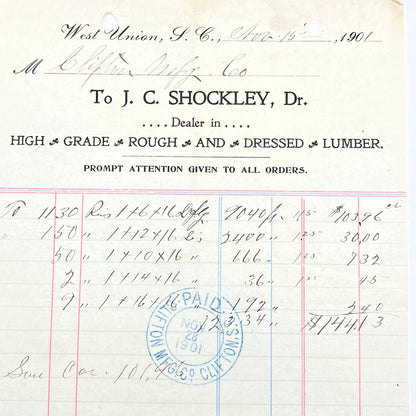 West Union, S. C., Nov 15 1901
M Clifton Mfg. Co
To J. C. SHOCKLEY, Dr.
....Dealer in....
HIGH GRADE ROUGH AND DRESSED LUMBER.
PROMPT ATTENTION GIVEN TO ALL ORDERS.
To 1130 Pcs 1+6+16 9040 ft 1.15 $103.96
" 150 " 1+12+16 2400 " 1.25 30.00
50 " 1+10+16 " 666 " 1.10 7.32
2 " 1+14+16 " 36 " 1.25 45
9 " 1+16+16 " 192 " 2.40
12334 $144.13
PAID
NOV
28
1901
CLIFTON MFG. CO. CLIFTON, S.C.
Car